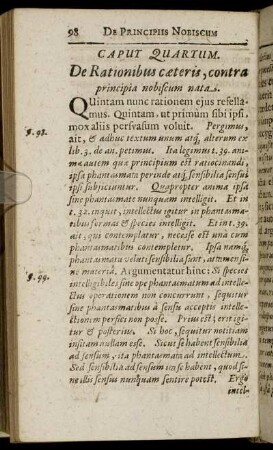 98 DE PRINCIPIIS NOBISCUM
CAPUT QUARTUM.
De Rationibus cæteris, contra
principia nobiscum nata.
Quintam nunc rationem ejus refella-
mus. Quintam, ut primùm sibi ipsi,
mox aliis persuasum voluit. Pergimus,
§. 98. ait, & adhuc textum unum atq; alterum ex
lib. 3. de an. petimus. Ita legimus t. 39. ani-
ma autem quæ principium est ratiocinandi,
ipsa phantasmata perinde atq; sensibilia sensui
ipsi subjiciuntur. Quapropter anima ipsa
sine phantasmate nunquam intelligit. Et in
t. 32. inquit, intellectus igitur in phantasma-
tibus formæ & species intelligit. Et in t. 39.
ait, qui contemplatur, necesse est unà cum
phantasmatibus contempletur. Ipsa namq;
phantasmata veluti sensibilia sunt, attamen si-
ne materiâ. Argumentatur hinc: Si species
§. 99. intelligibiles sine ope phantasmatum ad intelle-
ctus operationem non concurrunt, sequitur
sine phantasmatibus à sensu acceptis intelle-
ctionem perfici non posse. Prius est; ergò igi-
tur & posterius. Si hoc, sequitur notitiam
insitam nullam esse. Sicut se habent sensibilia
ad sensum, ita phantasmata ad intellectum.
Sed sensibilia ad sensum ita se habent, quod si-
ne illis sensus nunquam sentire potest. Ergò
intel-